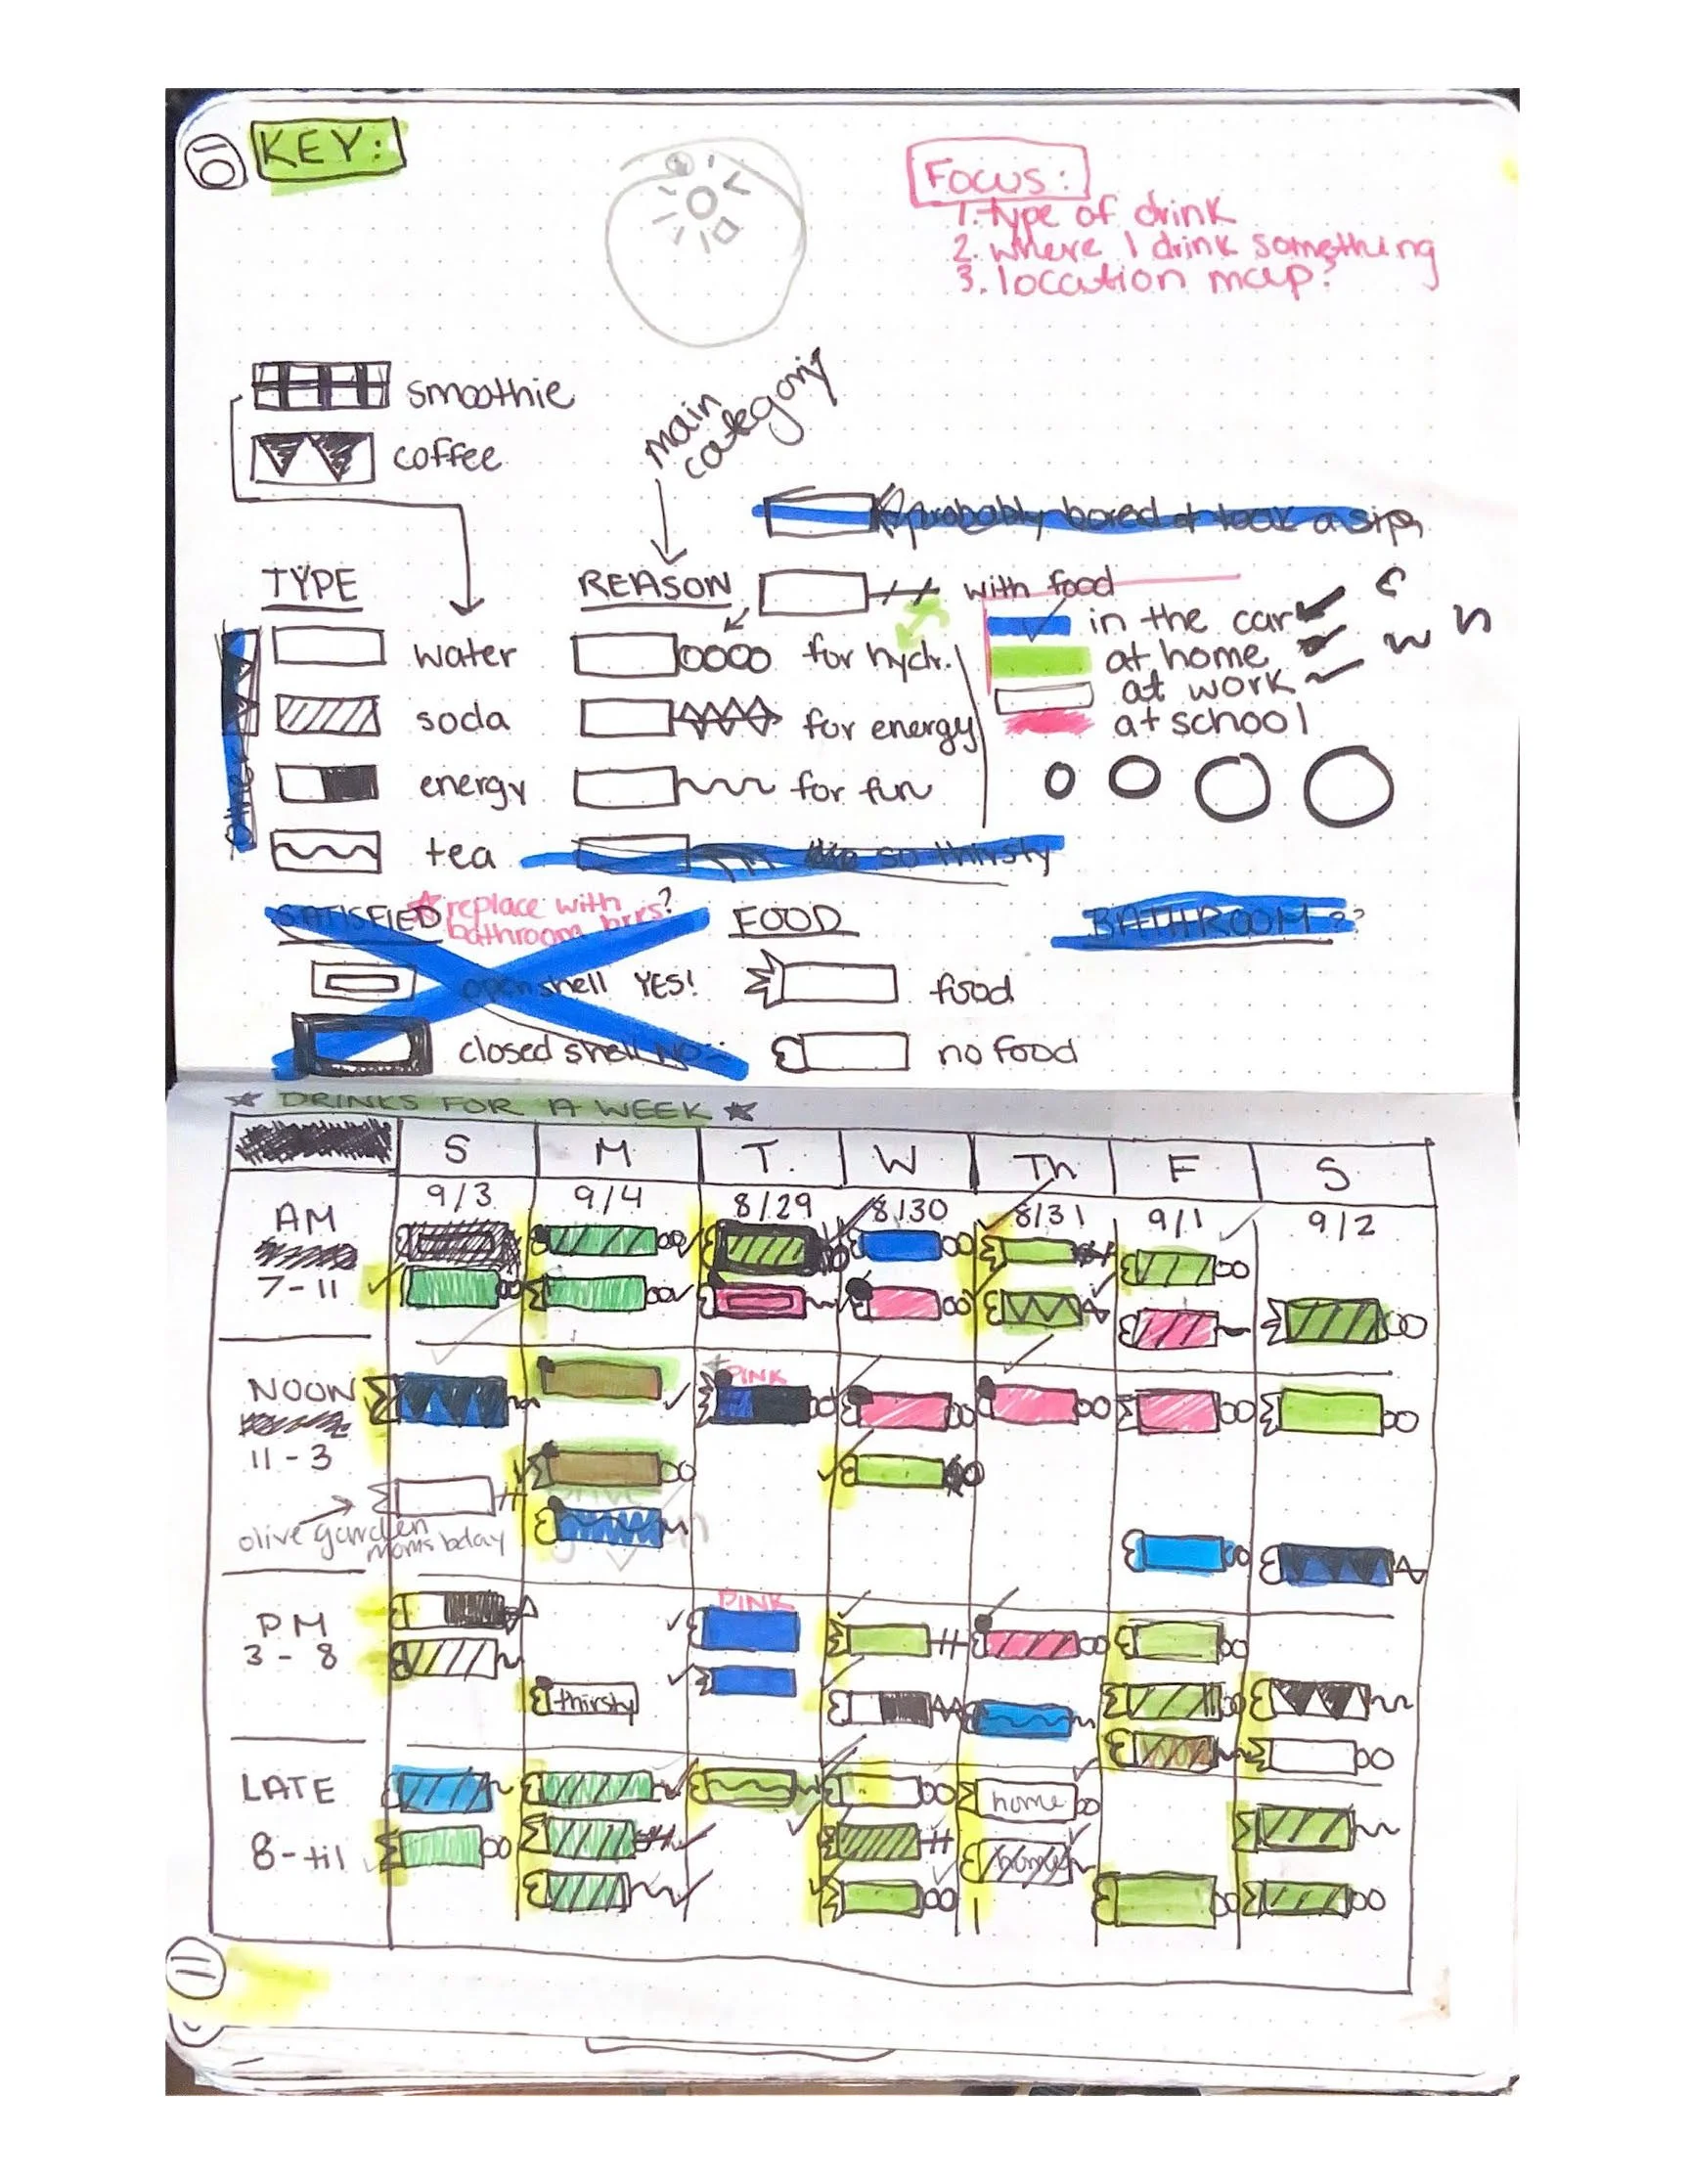 10
KEY:
Focus:
1. type of drink
2. where I drink something
3. location map?
smoothie
coffee
main
category
probably bored & took a sip
TYPE
REASON
with food
in the car
at home
at work
at school
water
for hydr.
soda
for energy
energy
for fun
tea
so thirsty
SATISFIED
replace with
bathroom brks?
FOOD
BATHROOM??
open shell YES!
food
closed shell NO
no food
★ DRINKS FOR A WEEK ★
S M T. W Th F S
9/3 9/4 8/29 8/30 8/31 9/1 9/2
AM
7-11
NOON
PINK
11-3
olive garden
moms bday
PM
PINK
3-8
thirsty
LATE
home
8-til
home
11